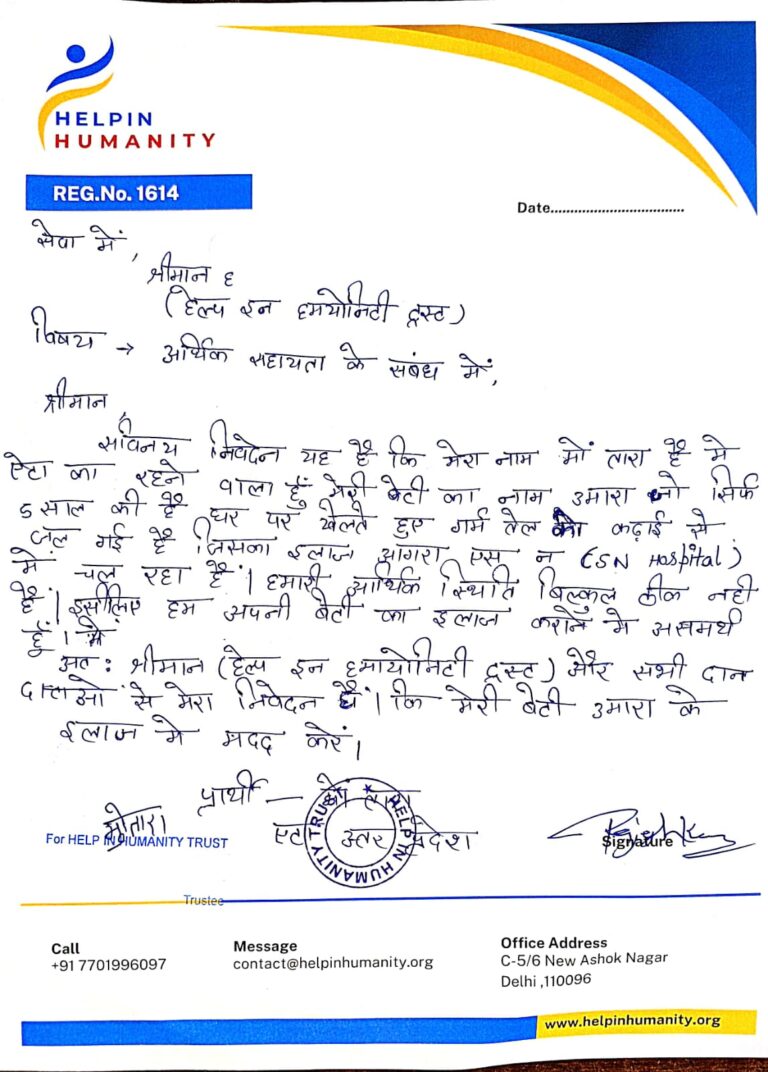 HELPIN
HUMANITY
REG.No. 1614
Date..................................
सेवा में,
श्रीमान
(हेल्प इन हमयोनिटी ट्रस्ट)
विषय → आर्थिक सहायता के संबंध में,
श्रीमान,
सविनय निवेदन यह है कि मेरा नाम मों तारा है मे
ऐटा का रहने वाला हुँ मेरी बेटी का नाम उमारा जो सिर्फ
5 साल की है घर पर खेलते हुए गर्म तेल कढ़ाई से
जल गई है जिसका इलाज आगरा एस न (SN Hospital)
में चल रहा है। हमारी आर्थिक स्थिति बिल्कुल ठीक नही
है। इसीलिए हम अपनी बेटी का इलाज कराने मे असमर्थ
हूँ।
अत: श्रीमान (हेल्प इन हमायोनिटी ट्रस्ट) और सभी दान
दाताओ से मेरा निवेदन है। कि मेरी बेटी उमारा के
इलाज मे मदद करें।
प्रार्थी — मों तारा
मोतारा
एटा उत्तर प्रदेश
For HELP IN HUMANITY TRUST
HELP IN HUMANITY TRUST
Signature
Trustee
Call
+91 7701996097
Message
contact@helpinhumanity.org
Office Address
C-5/6 New Ashok Nagar
Delhi ,110096
www.helpinhumanity.org